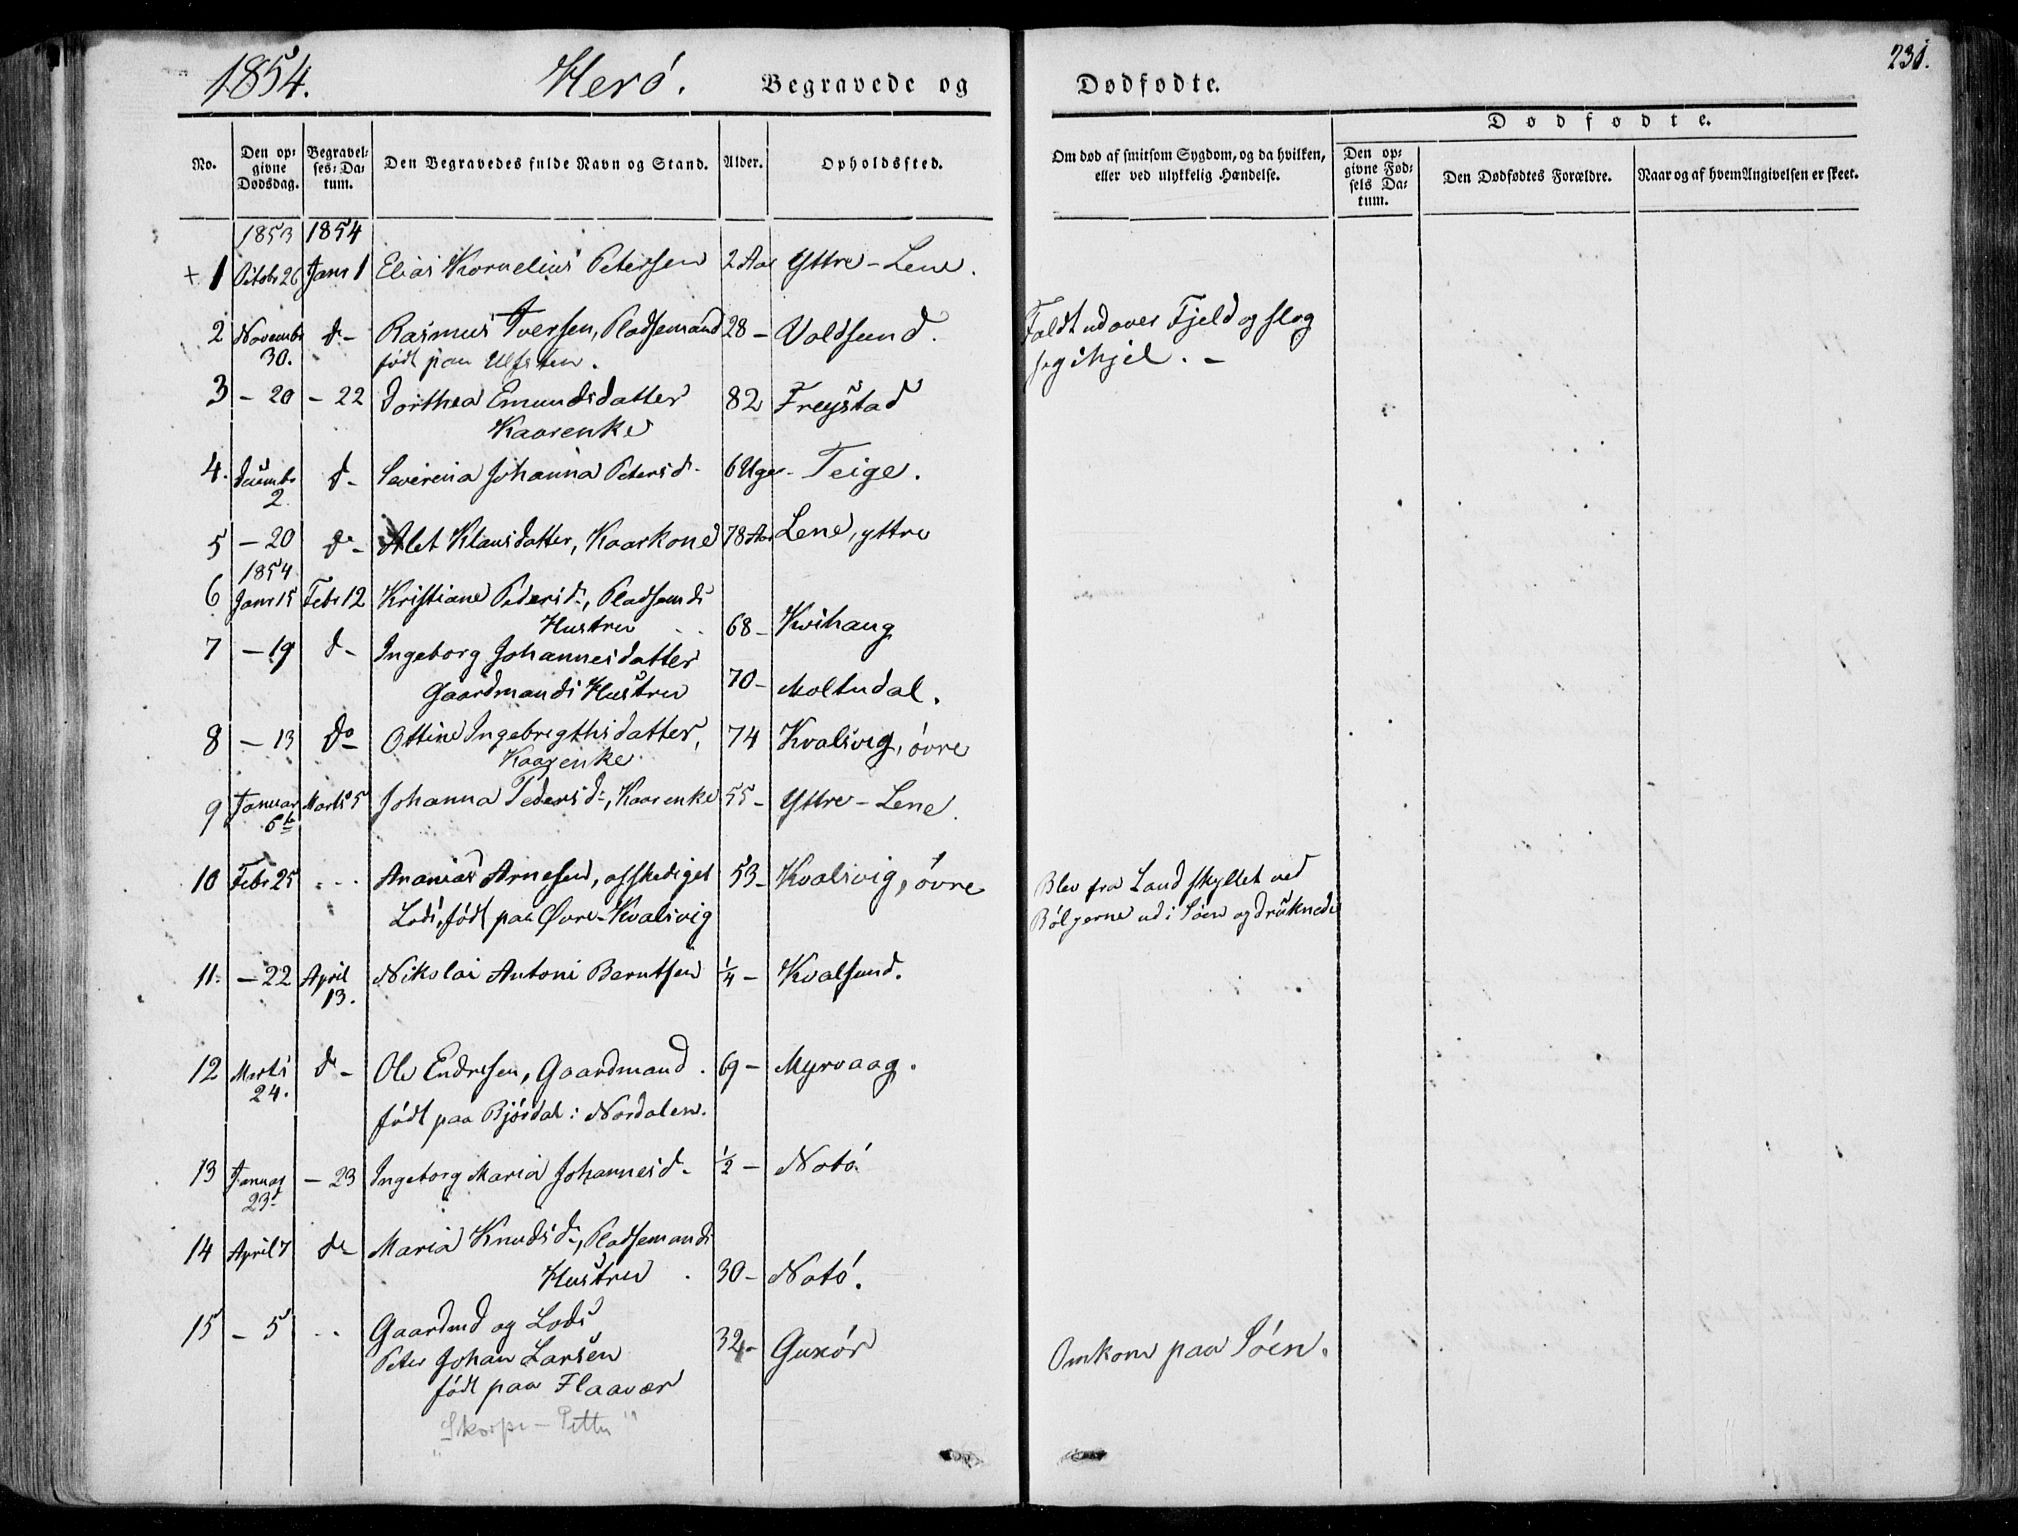 1854. Herö. Begravede og Dødfødte. 231.
No. Den opgivne Dødsdag. Begravelses-Datum. Den Begravedes fulde Navn og Stand. Alder. Opholdssted. Om død af smitsom Sygdom, og da hvilken, eller ved ulykkelig Hændelse. Dødfødte.
Den opgivne Fødsels Datum. Den Dødfødtes Forældre. Naar og af hvem Angivelsen er skeet.
1853 1854
+ 1 Octobr 26 Janr 1 Elias Kornelius Petersen 2 Aar Yttre-Lene.
2 Novembr 30. do - Rasmus Iversen, Pladsemand 28 - Voldsund. Faldt ud over Fjeld og slog
født paa Ulfsten. seg ihjel. -
3 - 20 - 22 Dorthea Emundsdatter 82 Freystad
Kaarenke
4. Decembr 2 do - Severina Johanna Petersd. 6 Uger - Teige.
5 - 20 do - Alet Klausdatter, Kaarkone 78 Aar Lene, yttre
1854
6 Janr 15 Febr 12 Kristiane Pedersdr, Pladsemds
Hustru 68 - Kvihaug
7 - 19 do - Ingeborg Johannesdatter
Gaardmands Hustru 70 - Moltudal.
8 - 13 do - Ottine Ingebrigthsdatter, 74 Kvalsvig, övre
Kaarenke
9 Januar 6te Marts 5 Johanna Pedersdr, Kaarenke 55 - Yttre-Lene.
10 Febr 25 . . . Ananias Arnesen, afskediget 53 - Kvalsvig, övre Blev fra Land skyllet ved
Lods, født paa Øvre-Kvalsvig Bölgerne ud i Söen og druknede
11. - 22 April 13. Nikolai Antoni Berntsen 1/4 - Kvalsund.
12 Marts 24. do - Ole Endresen, Gaardmand. 69 - Myrvaag.
födt paa Bjórdal i Nordalen.
13 Januar 23d - 23 Ingeborg Maria Johannesd. 1/2 - Notö.
14 April 7 do - Maria Knudsdr, Pladsemands
Hustru . 30 - Notö.
15 - 5 . . Gaardmd og Lods
Peter Johan Larsen 32 - Guxör Omkom paa Söen.
födt paa Flaavær
"Skorpe-Petter"